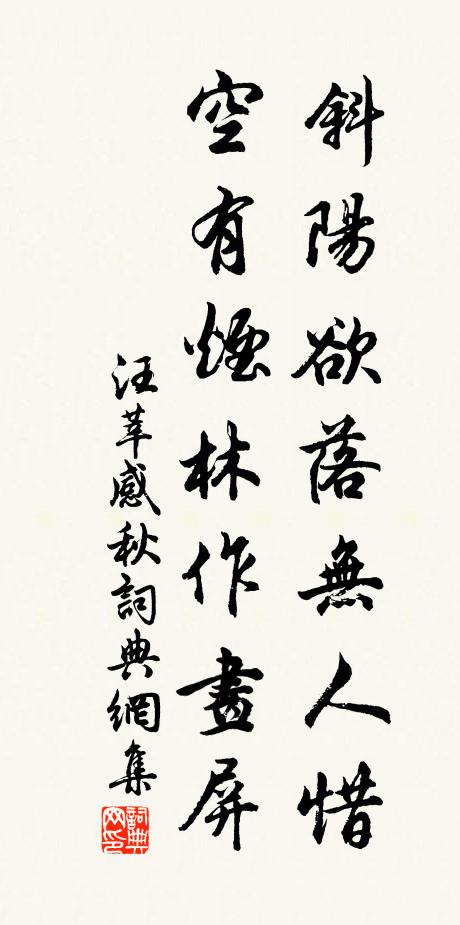 斜陽欲落無人惜
空有煙林作畫屏
汪莘感秋詞典網集
詞典網印